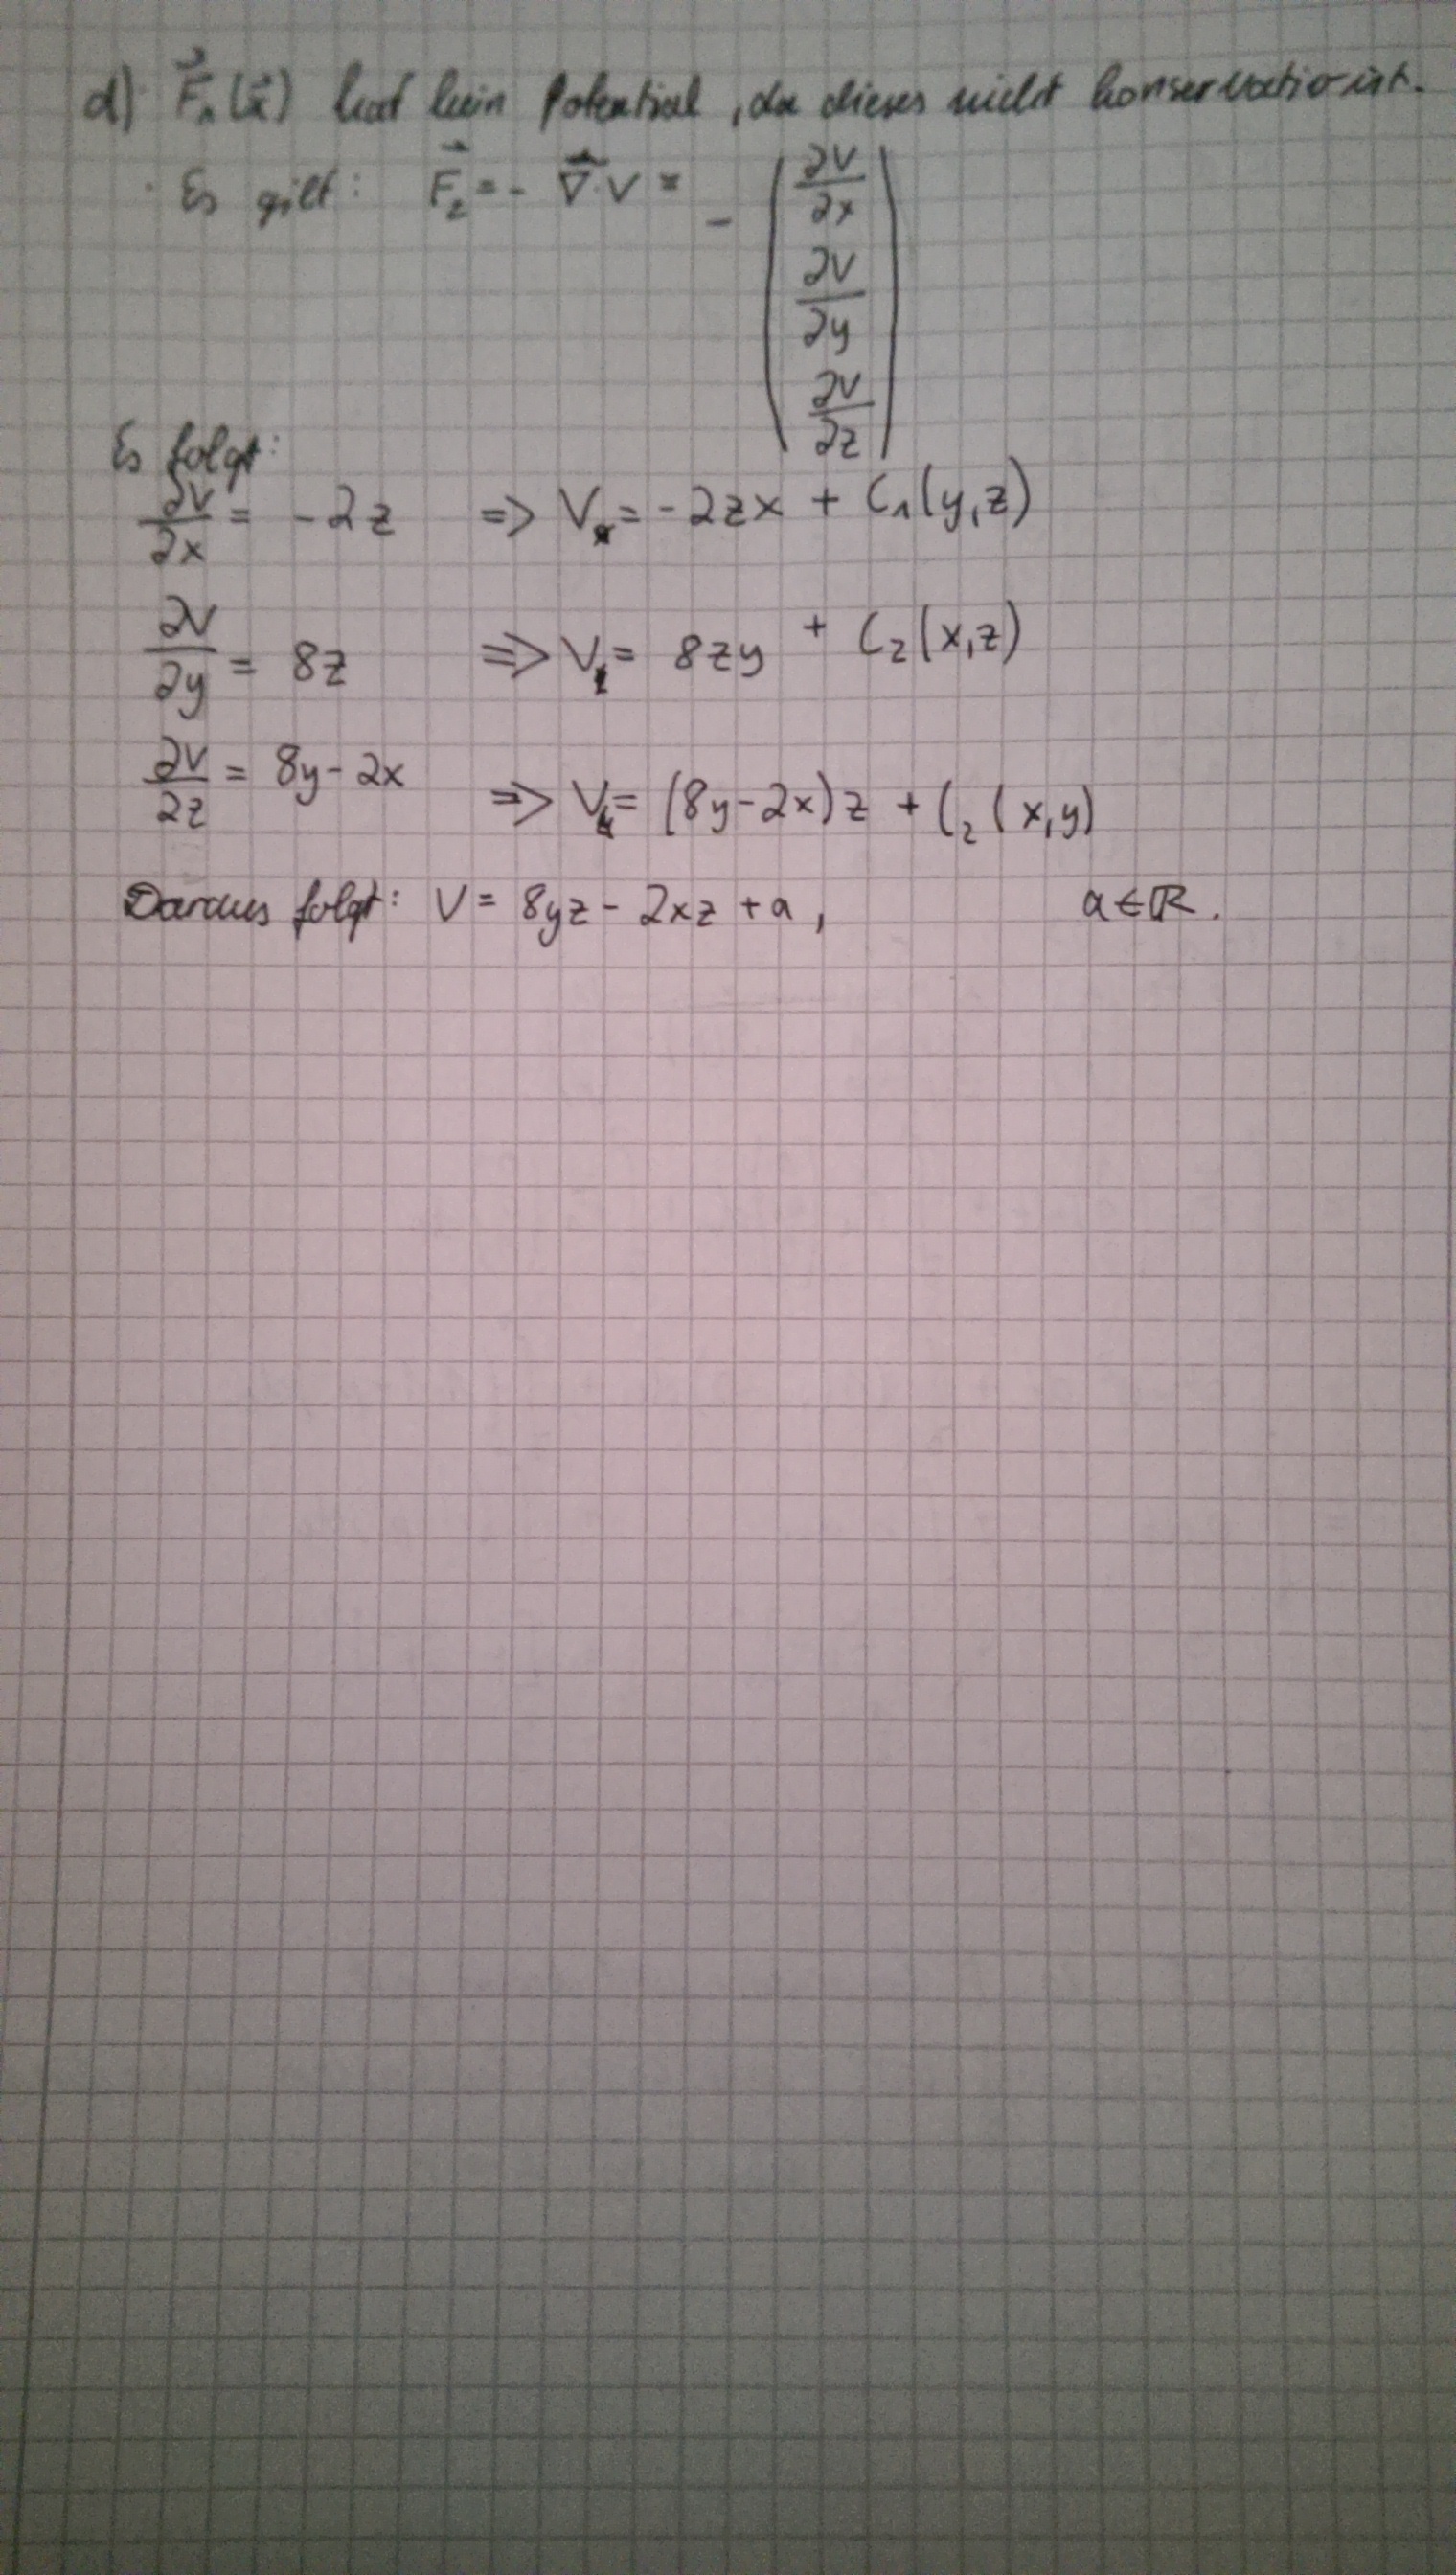 d) F⃗₁(x⃗) hat kein Potential, da dieses nicht konservativ ist.
Es gilt: F⃗₂ = - ∇⃗·V = - (∂V/∂x ∂V/∂y ∂V/∂z)
Es folgt:
∂V/∂x = -2z => V = -2zx + C₁(y,z)
∂V/∂y = 8z => V = 8zy + C₂(x,z)
∂V/∂z = 8y-2x => V = (8y-2x)z + C₂(x,y)
Daraus folgt: V = 8yz - 2xz + a, a∈ℝ.